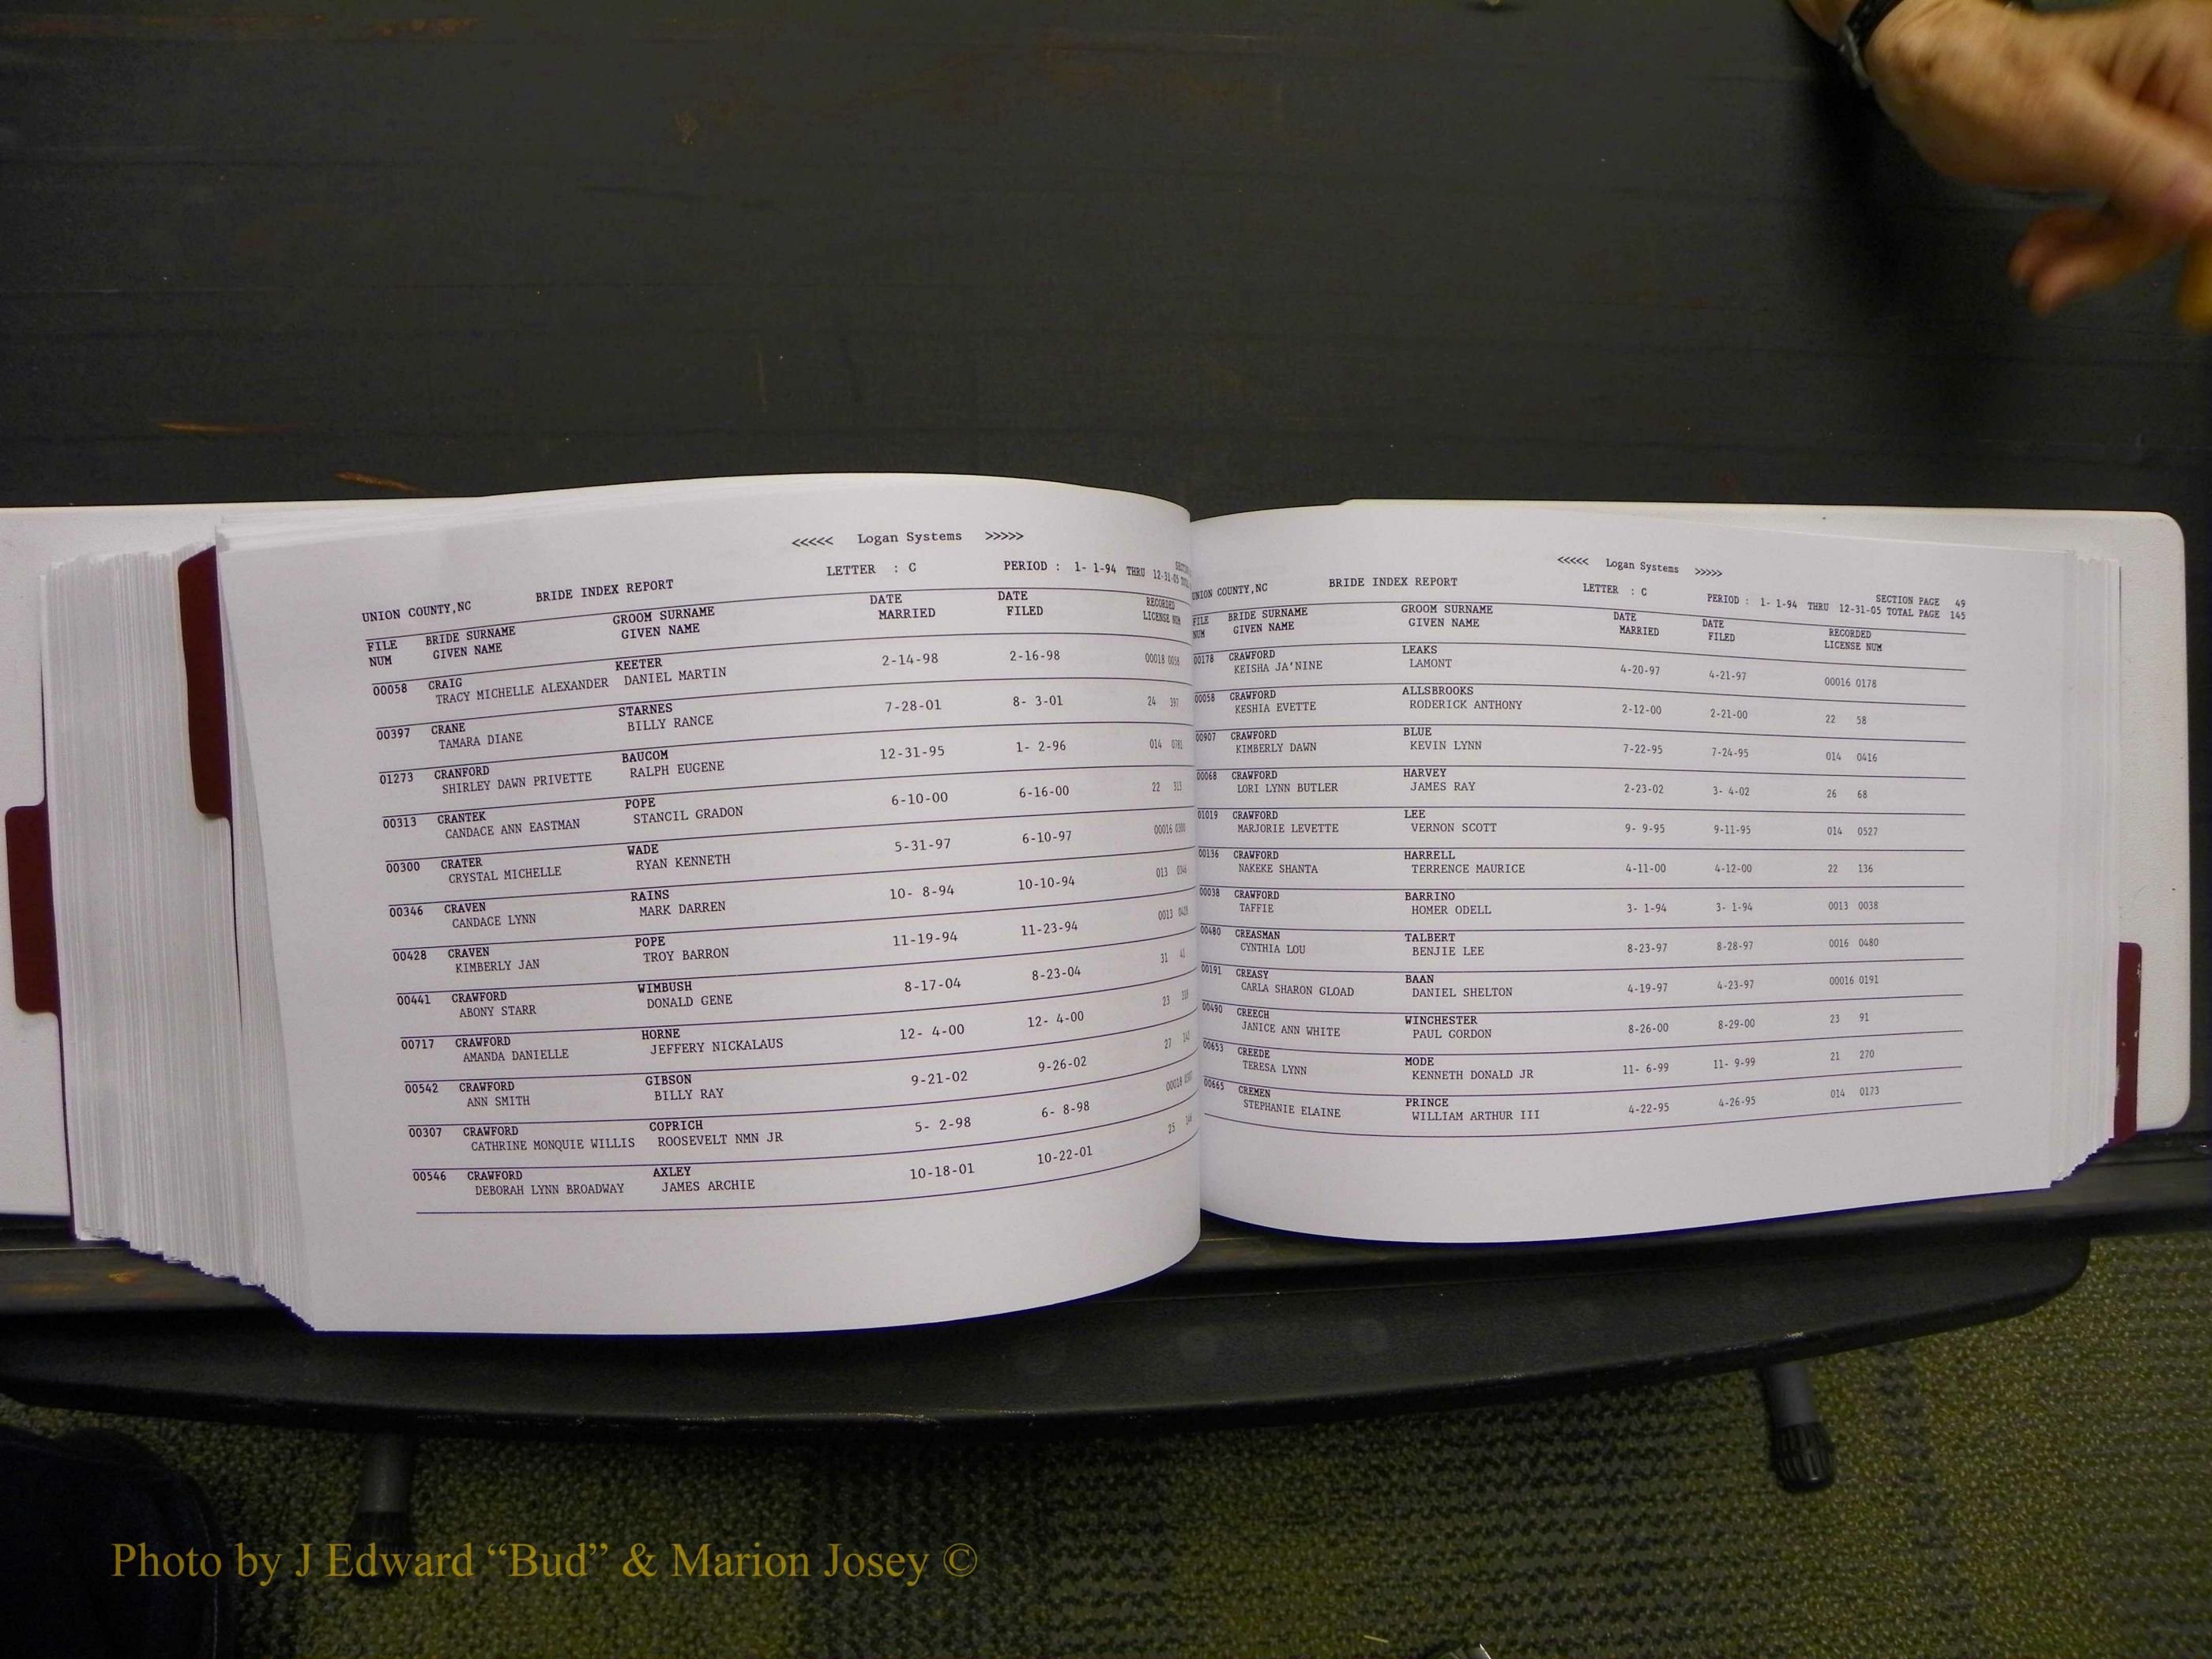 <<<<< Logan Systems >>>>>
UNION COUNTY,NC BRIDE INDEX REPORT LETTER : C PERIOD : 1- 1-94 THRU 12-31-05
FILE BRIDE SURNAME GROOM SURNAME DATE DATE RECORDED
NUM GIVEN NAME GIVEN NAME MARRIED FILED LICENSE NUM
00058 CRAIG KEETER 2-14-98 2-16-98 00018 0058
TRACY MICHELLE ALEXANDER DANIEL MARTIN
00397 CRANE STARNES 7-28-01 8- 3-01 24 397
TAMARA DIANE BILLY RANCE
01273 CRANFORD BAUCOM 12-31-95 1- 2-96 014 0781
SHIRLEY DAWN PRIVETTE RALPH EUGENE
00313 CRANTEK POPE 6-10-00 6-16-00 22 313
CANDACE ANN EASTMAN STANCIL GRADON
00300 CRATER WADE 5-31-97 6-10-97 00016 0300
CRYSTAL MICHELLE RYAN KENNETH
00346 CRAVEN RAINS 10- 8-94 10-10-94 013 0346
CANDACE LYNN MARK DARREN
00428 CRAVEN POPE 11-19-94 11-23-94 0013 0428
KIMBERLY JAN TROY BARRON
00441 CRAWFORD WIMBUSH 8-17-04 8-23-04 31 41
ABONY STARR DONALD GENE
00717 CRAWFORD HORNE 12- 4-00 12- 4-00 23
AMANDA DANIELLE JEFFERY NICKALAUS
00542 CRAWFORD GIBSON 9-21-02 9-26-02 27
ANN SMITH BILLY RAY
00307 CRAWFORD COPRICH 5- 2-98 6- 8-98 00018 0307
CATHRINE MONQUIE WILLIS ROOSEVELT NMN JR
00546 CRAWFORD AXLEY 10-18-01 10-22-01 25
DEBORAH LYNN BROADWAY JAMES ARCHIE
<<<<< Logan Systems >>>>>
UNION COUNTY,NC BRIDE INDEX REPORT LETTER : C SECTION PAGE 49
PERIOD : 1- 1-94 THRU 12-31-05 TOTAL PAGE 145
FILE BRIDE SURNAME GROOM SURNAME DATE DATE RECORDED
NUM GIVEN NAME GIVEN NAME MARRIED FILED LICENSE NUM
00178 CRAWFORD LEAKS 4-20-97 4-21-97 00016 0178
KEISHA JA'NINE LAMONT
00058 CRAWFORD ALLSBROOKS 2-12-00 2-21-00 22 58
KESHIA EVETTE RODERICK ANTHONY
00907 CRAWFORD BLUE 7-22-95 7-24-95 014 0416
KIMBERLY DAWN KEVIN LYNN
00068 CRAWFORD HARVEY 2-23-02 3- 4-02 26 68
LORI LYNN BUTLER JAMES RAY
01019 CRAWFORD LEE 9- 9-95 9-11-95 014 0527
MARJORIE LEVETTE VERNON SCOTT
00136 CRAWFORD HARRELL 4-11-00 4-12-00 22 136
NAKEKE SHANTA TERRENCE MAURICE
00038 CRAWFORD BARRINO 3- 1-94 3- 1-94 0013 0038
TAFFIE HOMER ODELL
00480 CREASMAN TALBERT 8-23-97 8-28-97 0016 0480
CYNTHIA LOU BENJIE LEE
00191 CREASY BAAN 4-19-97 4-23-97 00016 0191
CARLA SHARON GLOAD DANIEL SHELTON
00490 CREECH WINCHESTER 8-26-00 8-29-00 23 91
JANICE ANN WHITE PAUL GORDON
00653 CREEDE MODE 11- 6-99 11- 9-99 21 270
TERESA LYNN KENNETH DONALD JR
00665 CREMEN PRINCE 4-22-95 4-26-95 014 0173
STEPHANIE ELAINE WILLIAM ARTHUR III
Photo by J Edward “Bud” & Marion Josey ©